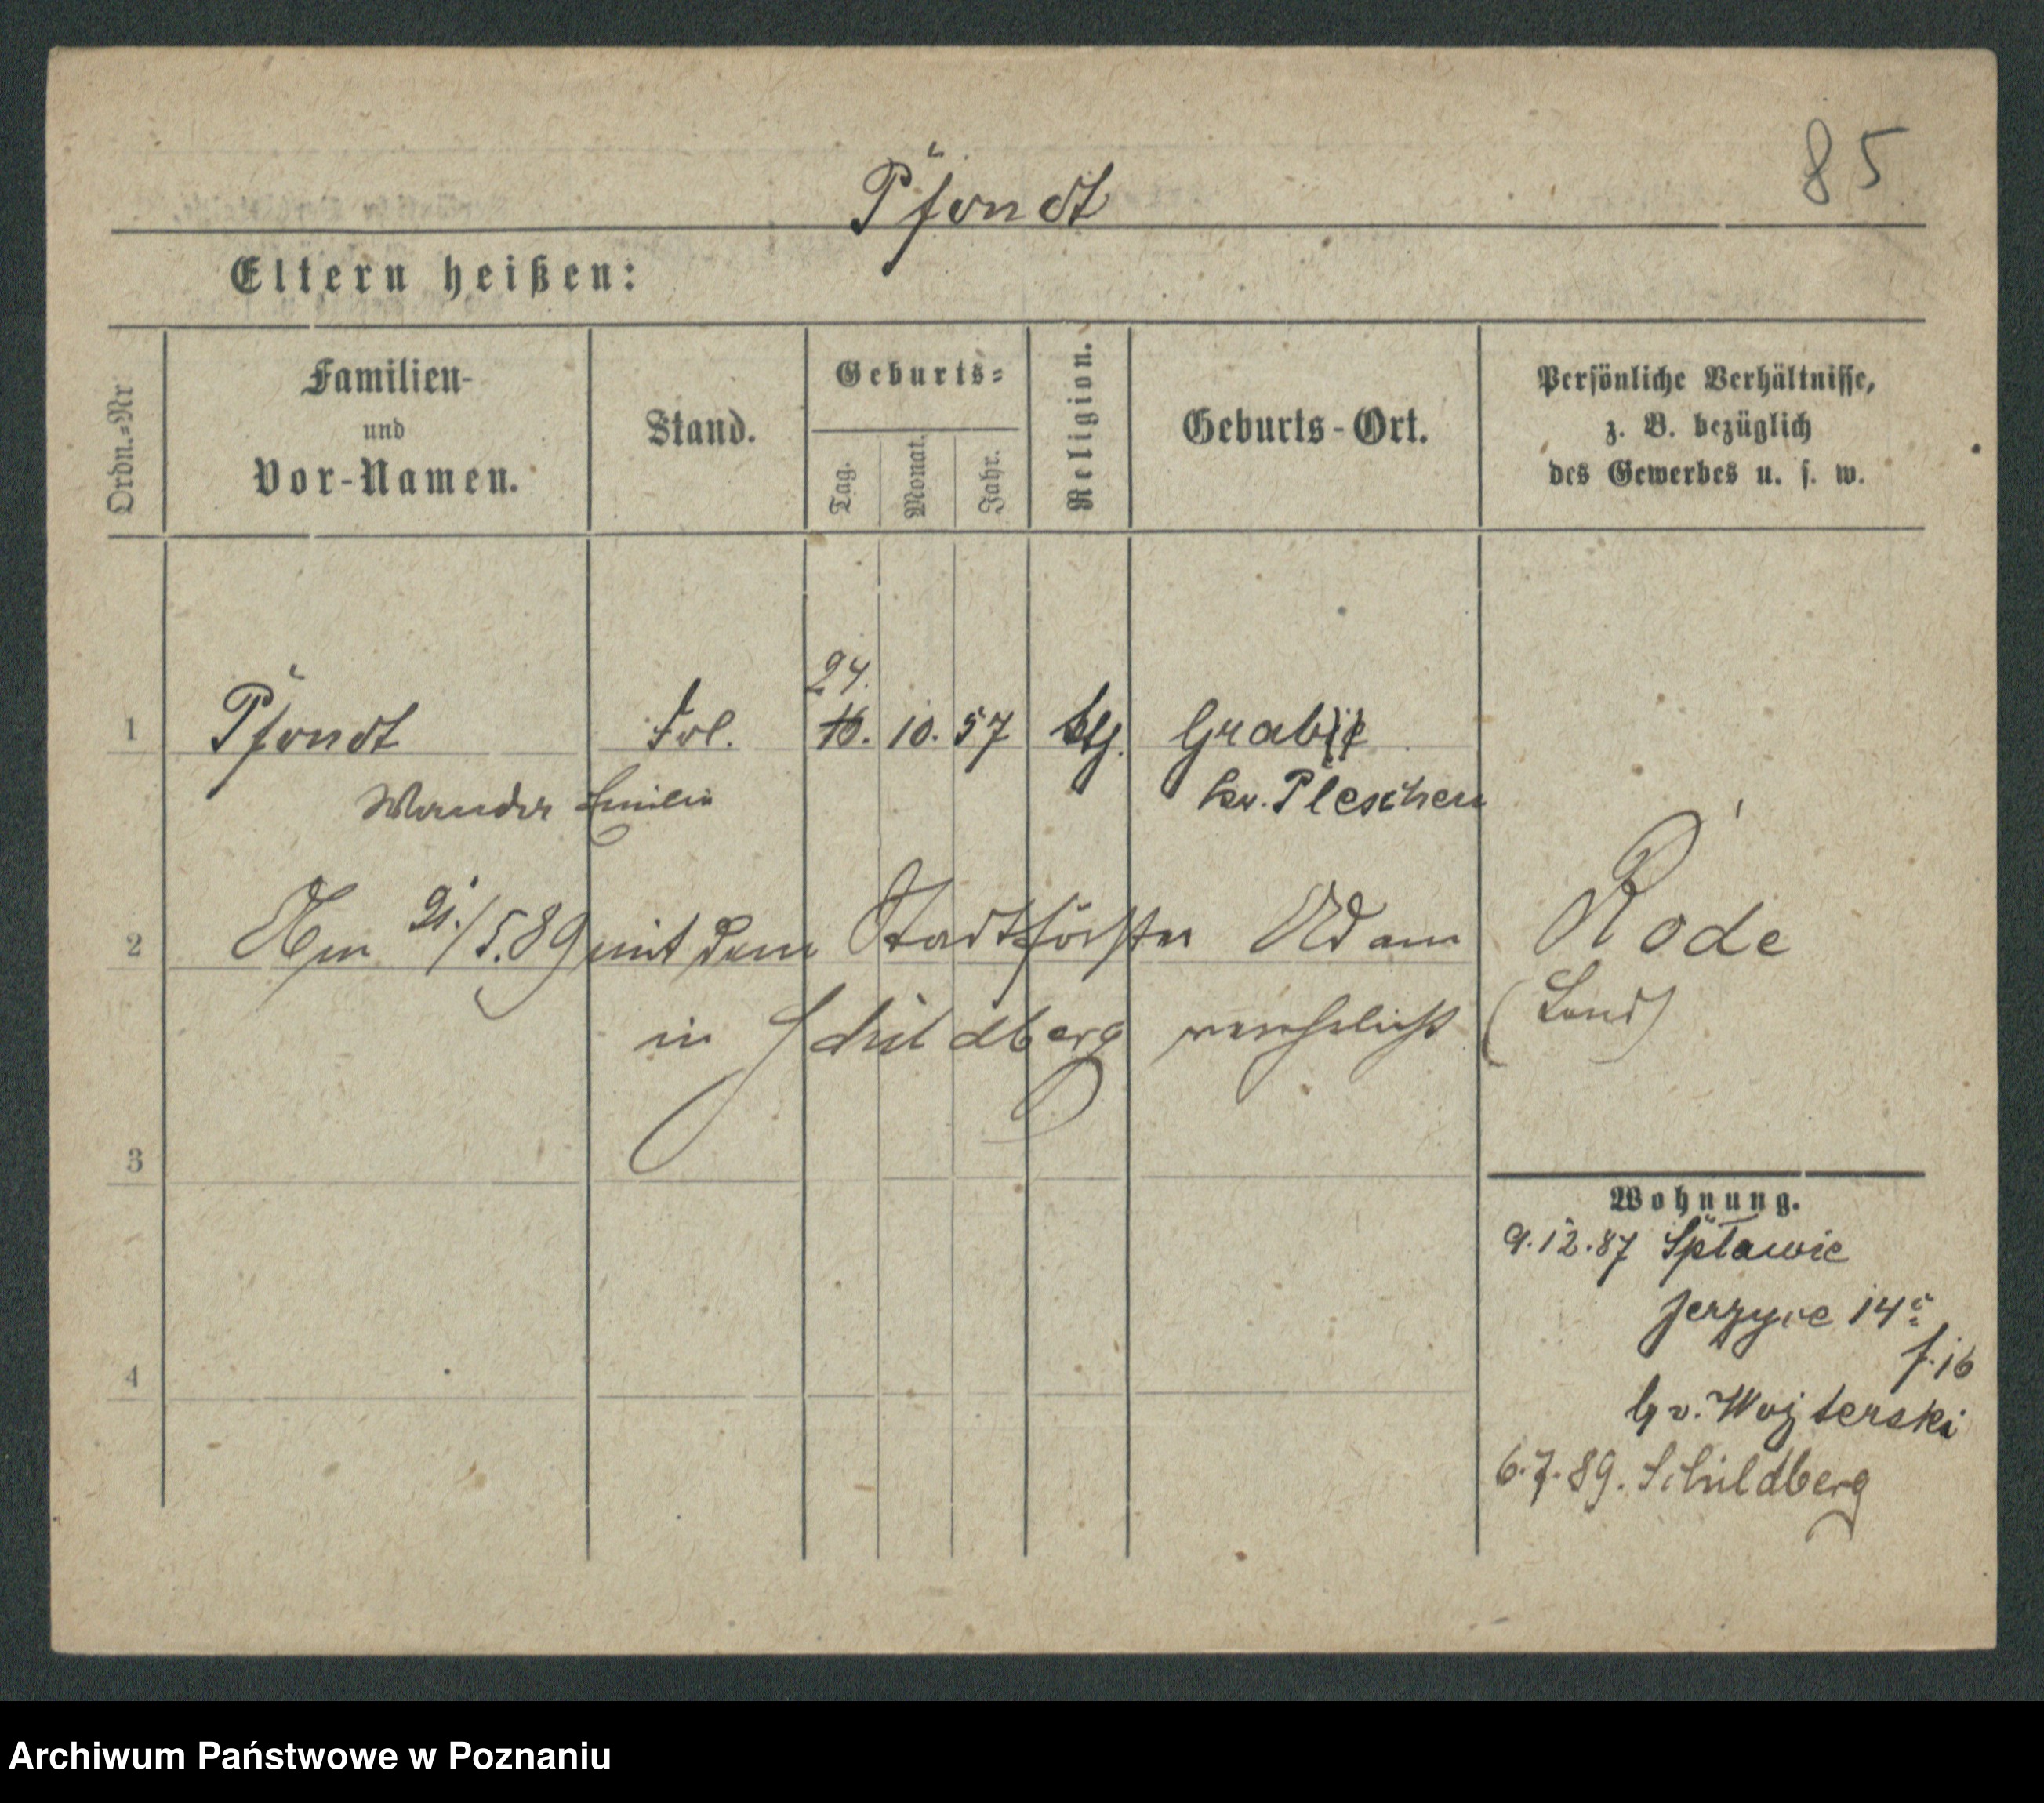 85
Pfondt
Eltern heißen:
Ordn.=Nr
Familien-
und
Vor-Namen.
Stand.
Geburts=
Tag.
Monat.
Jahr.
Religion.
Geburts-Ort.
Persönliche Verhältnisse,
z. B. bezüglich
des Gewerbes u. s. w.
24.
1 Pfondt 10. 57
Pleschen
2 Am 21./5.89 mit dem Stadtförster Adam Rode
in Schildberg verehelicht
3
Wohnung.
9.12.87 Spławie
Jerzyce 14
4
v. Wojterski
6.7.89. Schildberg
Archiwum Państwowe w Poznaniu